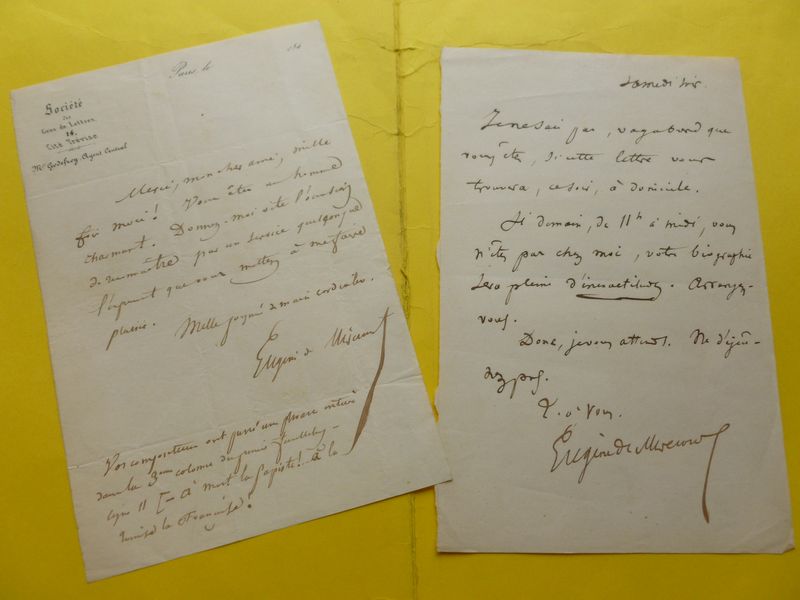 Paris, le 184
Société
des
Gens de Lettres
14
Cité Trévise
Mr. Godefroy, Agent Central
Merci, mon cher ami, mille
fois merci! Vous êtes un homme
charmant. Donnez-moi vite l'occasion
de reconnaître par un service quelconque
l'empressement que vous mettez à me faire
plaisir. Mille poignées de main cordiales.
Eugène de Mirecourt
Vos compositeurs ont passé un phrase entière
dans la 3eme colonne du premier feuilleton
ligne 11 [- à mort la papiste! à la
la Française!
Samedi soir.
Je ne sais pas, vagabond que
vous êtes, si cette lettre vous
trouvera, ce soir, à domicile.
Si demain, de 11h à midi, vous
n'êtes pas chez moi, votre biographie
sera pleine d'inexactitudes. Arrangez-
vous.
Donc, je vous attends. Ne déjeu-
nez pas.
T. à vous.
Eugène de Mirecourt